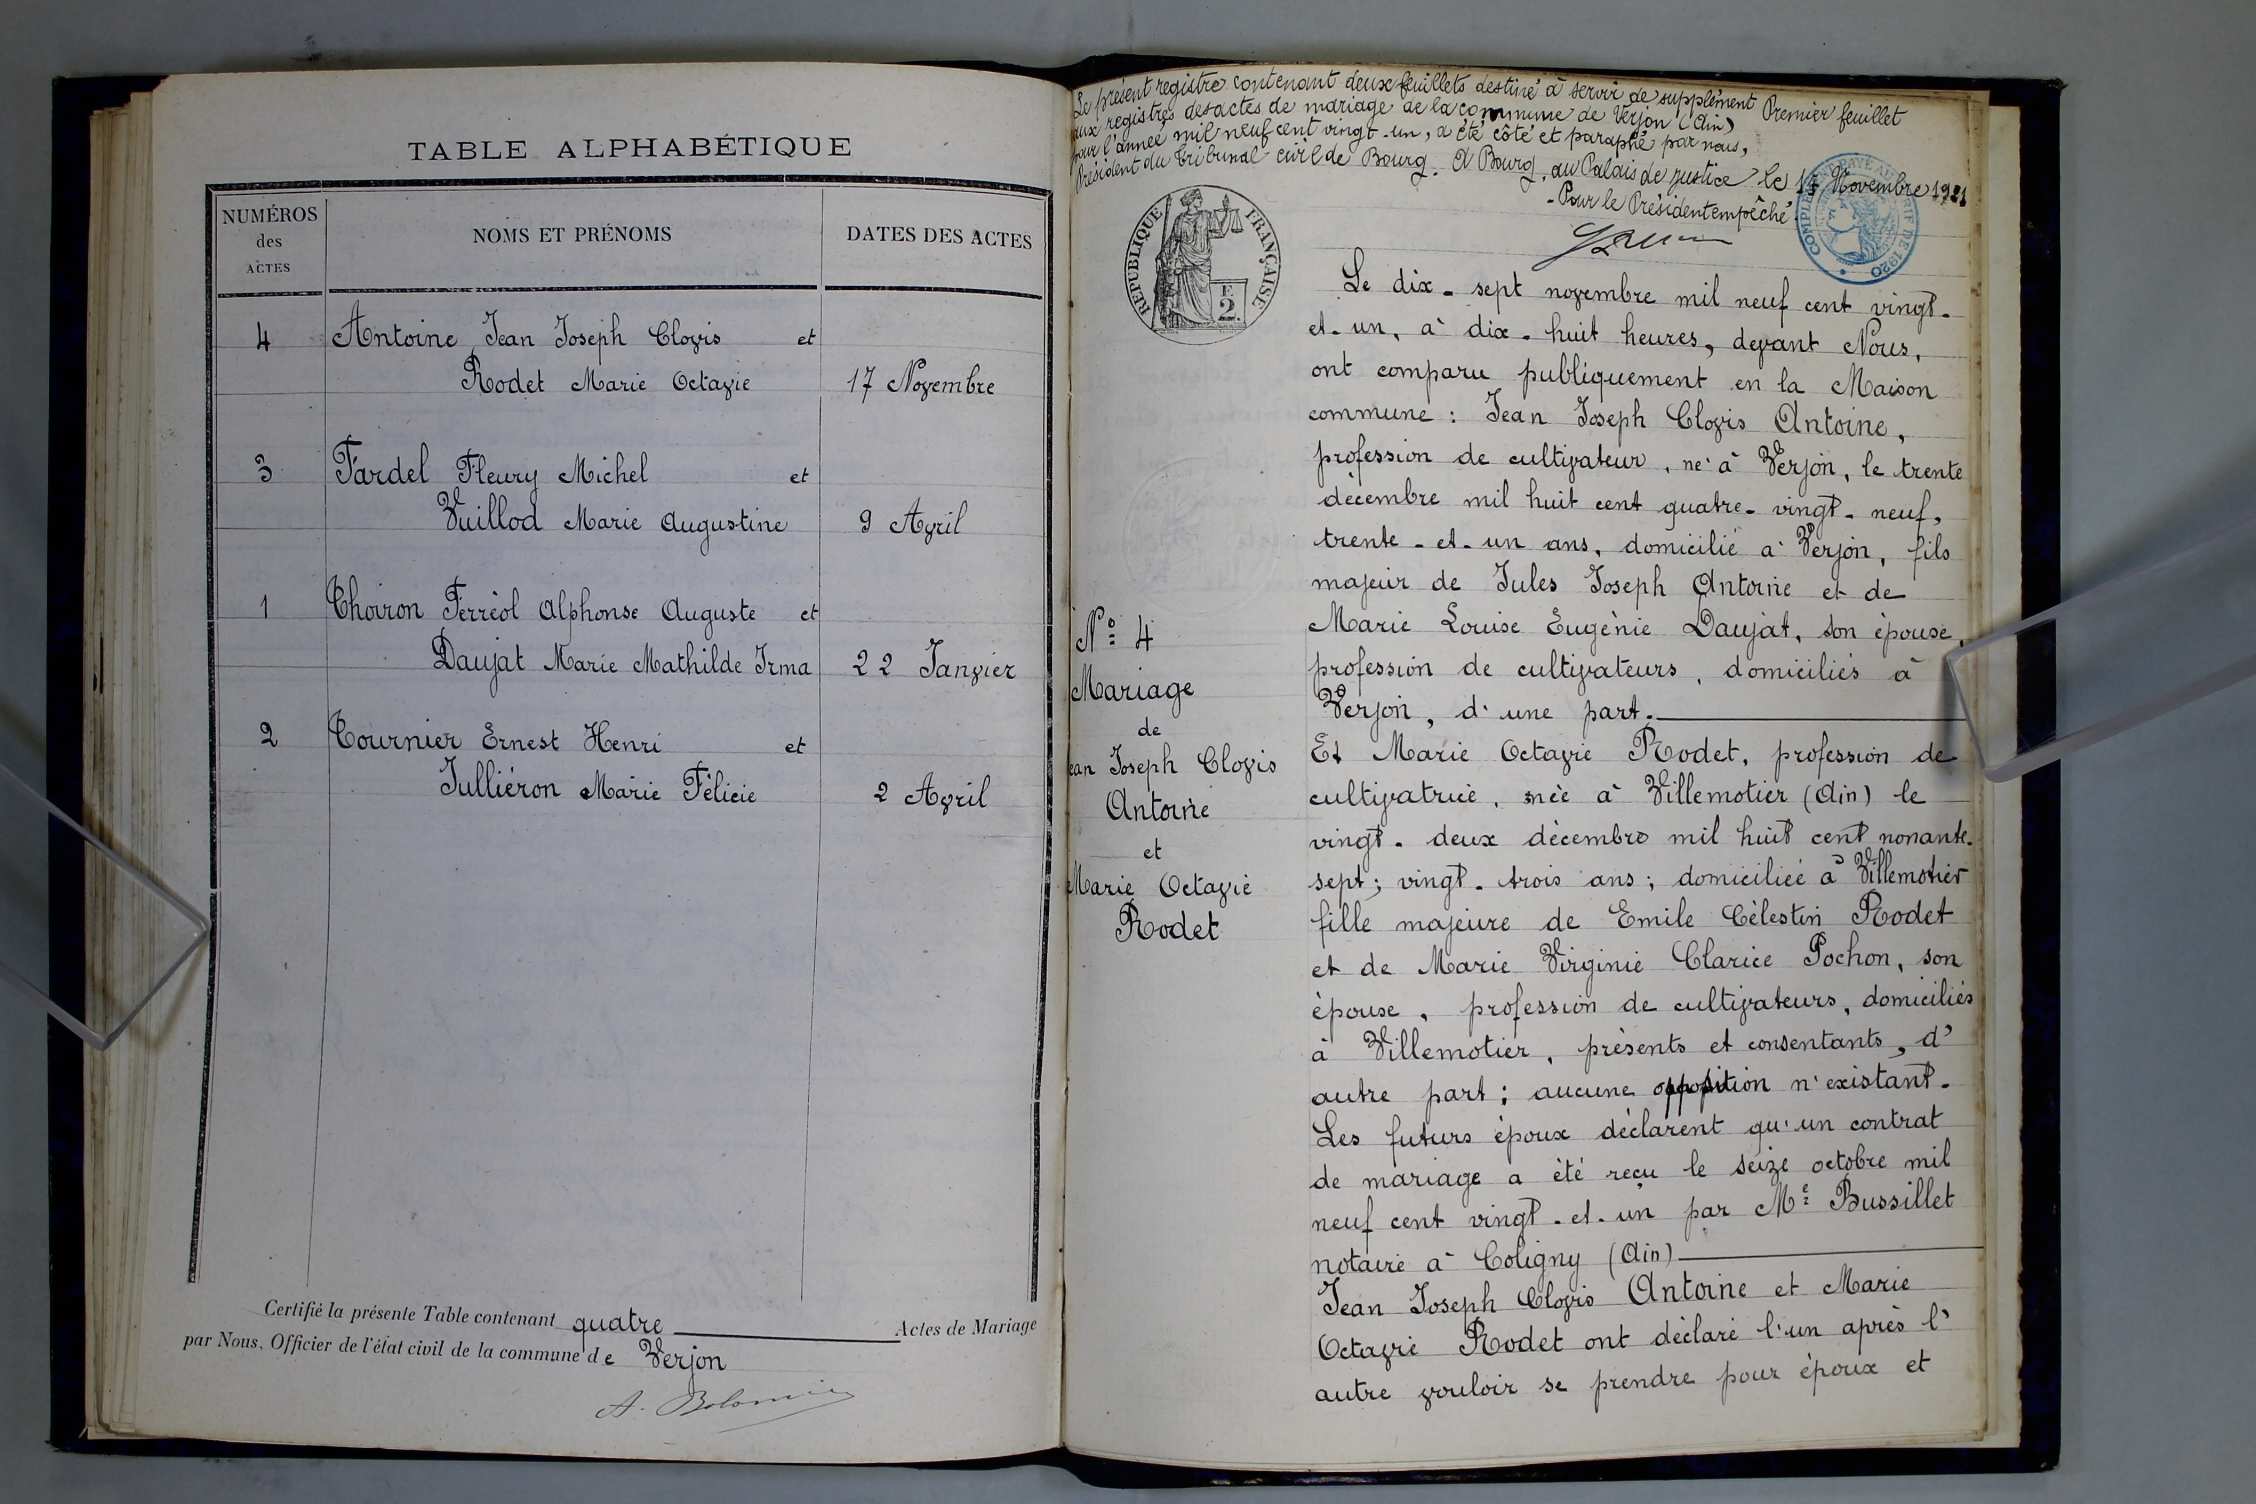 TABLE ALPHABÉTIQUE
NUMÉROS
des
ACTES
NOMS ET PRÉNOMS
DATES DES ACTES
4 Antoine Jean Joseph Clovis et
Rodet Marie Octavie 17 Novembre
3 Fardel Fleury Michel et
Vuillod Marie Augustine 9 Avril
1 Thoiron Ferréol Alphonse Auguste et
Daujat Marie Mathilde Irma 22 Janvier
2 Tournier Ernest Henri et
Julliéron Marie Félicie 2 Avril
Certifié la présente Table contenant quatre Actes de Mariage
par Nous, Officier de l'état civil de la commune de Verjon
Le présent registre contenant deux feuillets destiné à servir de supplément Premier feuillet
aux registres des actes de mariage de la commune de Verjon (Ain)
pour l'année mil neuf cent vingt-un, a été côté et paraphé par nous,
Président du Tribunal civil de Bourg. A Bourg, au Palais de justice le Novembre 1921
- Pour le Président empêché
RÉPUBLIQUE FRANÇAISE
F.
2.
COMPLÉMENT PAYÉ AU TARIF DE 1920
Le dix-sept novembre mil neuf cent vingt-
et-un, à dix-huit heures, devant Nous,
ont comparu publiquement en la Maison
commune : Jean Joseph Clovis Antoine,
profession de cultivateur, né à Verjon, le trente
décembre mil huit cent quatre-vingt-neuf,
trente-et-un ans, domicilié à Verjon, fils
majeur de Jules Joseph Antoine et de
Marie Louise Eugènie Daujat, son épouse,
profession de cultivateurs, domiciliés à
Verjon, d'une part.
Et Marie Octavie Rodet, profession de
cultivatrice, née à Villemotier (Ain) le
vingt-deux décembre mil huit cent nonante-
sept; vingt-trois ans; domiciliée à Villemotier
fille majeure de Emile Célestin Rodet
et de Marie Virginie Clarice Pochon, son
épouse, profession de cultivateurs, domiciliés
à Villemotier, présents et consentants, d'
autre part; aucune opposition n'existant.
Les futurs époux déclarent qu'un contrat
de mariage a été reçu le seize octobre mil
neuf cent vingt-et-un par Me Bussillet
notaire à Coligny (Ain)
Jean Joseph Clovis Antoine et Marie
Octavie Rodet ont déclaré l'un après l'
autre vouloir se prendre pour époux et
No 4
Mariage
de
ean Joseph Clovis
Antoine
et
Marie Octavie
Rodet